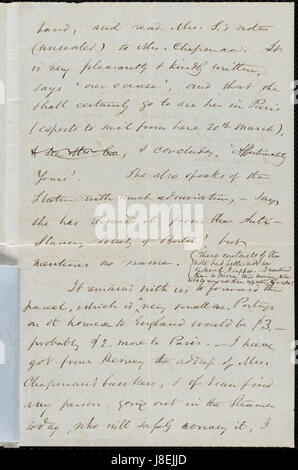 hand, and read Mrs. S.'s note
(unsealed) to Mrs. Chapman. It
is very pleasantly & kindly written,
says "our cause", and that she
shall certainly go to see her in Paris
(expects to sail from here 20th March),
& concludes, "Affectionately
Yours'. She also speaks of the
Statue with much admiration, - says
she has it from the Anti-
Slavery Society of Boston', but
mentions no name.
It remains with us to forward the
parcel, which is very small one. Postage
on it however to England would be $3, -
probably $2. more to Paris. - I have
got from Hervey the address of Mrs.
Chapman's bankers, & if I can find
any person, going out in the Steamer
today, who will safely convey it, I
alamy
Image ID: J8EJJD
www.alamy.com